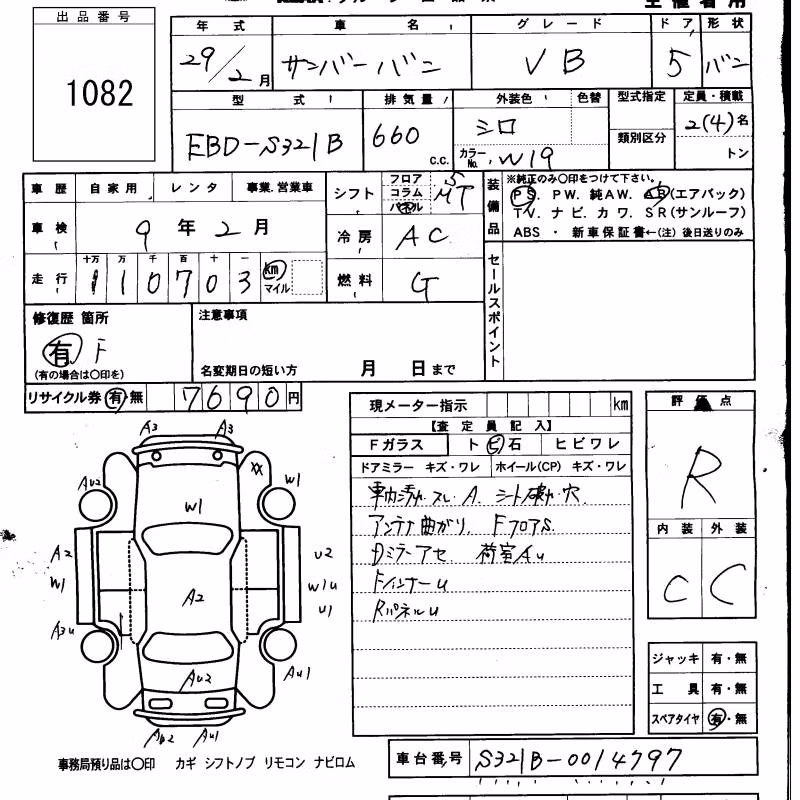 出品番号
1082
年式 車名 グレード ドア 形状
29/2月 サンバーバン VB 5 バン
型式 排気量 外装色 色替 型式指定 定員・積載
EBD-S321B 660 c.c. シロ 類別区分 2(4)名
カラーNo. W19 トン
車歴 自家用 レンタ 事業.営業車
シフト フロア コラム パネル 5 MT
装備品 ※純正のみ〇印をつけて下さい。
PS. PW. 純AW. AB(エアバック)
TV. ナビ. カワ. SR(サンルーフ)
ABS ・ 新車保証書←(注) 後日送りのみ
車検 9年2月 冷房 AC
走行 十万 万 千 百 十 一
110703 km マイル 燃料 G
セールスポイント
修復歴 箇所 注意事項
有 F
(有の場合は〇印を) 名変期日の短い方 月 日まで
リサイクル券 有・無 7690円
現メーター指示 km
【査定員記入】
Fガラス トビ石 ヒビワレ
ドアミラー キズ・ワレ ホイール(CP) キズ・ワレ
車内汚れ.スレ.A.シート破れ.穴.
アンテナ曲がり. FフロアS.
Dミラーアセ. 荷室AU
FインナーU
RパネルU
評価点
R
内装 外装
C C
ジャッキ 有・無
工具 有・無
スペアタイヤ 有・無
A3 A3
AU2 XX W1
W1
A2 U2
W1 A2 W1U
U1
A3U AU1
AU2
AU2 AU1
事務局預り品は〇印 カギ シフトノブ リモコン ナビロム
車台番号 S321B-0014797